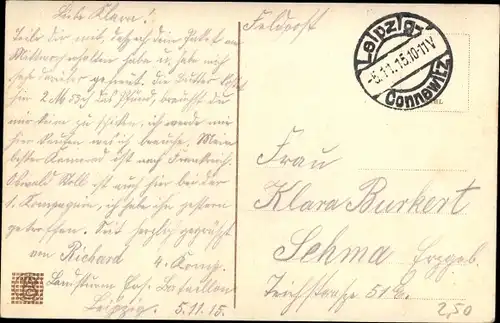 Liebe Klara!
Teile dir mit, daß ich dein Paket am
Mittwoch erhalten habe u. habe mich
sehr darüber gefreut. Die Butter kostet
hier 2 M das Pfund, brauchst du
mir keine zu schicken, ich werde mir
hier kaufen was ich brauche. Mein
bester Kamerad ist nach Frankreich.
Oswald Koll ist auch hier bei der
1. Kompagnie, ich habe ihn gestern
getroffen. Seit herzlich gegrüßt
von Richard 4. Komp.
Landsturm Inf. Batallion
Leipzig. 5.11.15.
Feldpost
Leipzig-
-5.11.15.10-11V
Connewitz
Frau
Klara Burkert
Sehma Erzgeb.
Teichstraße 51
2,50